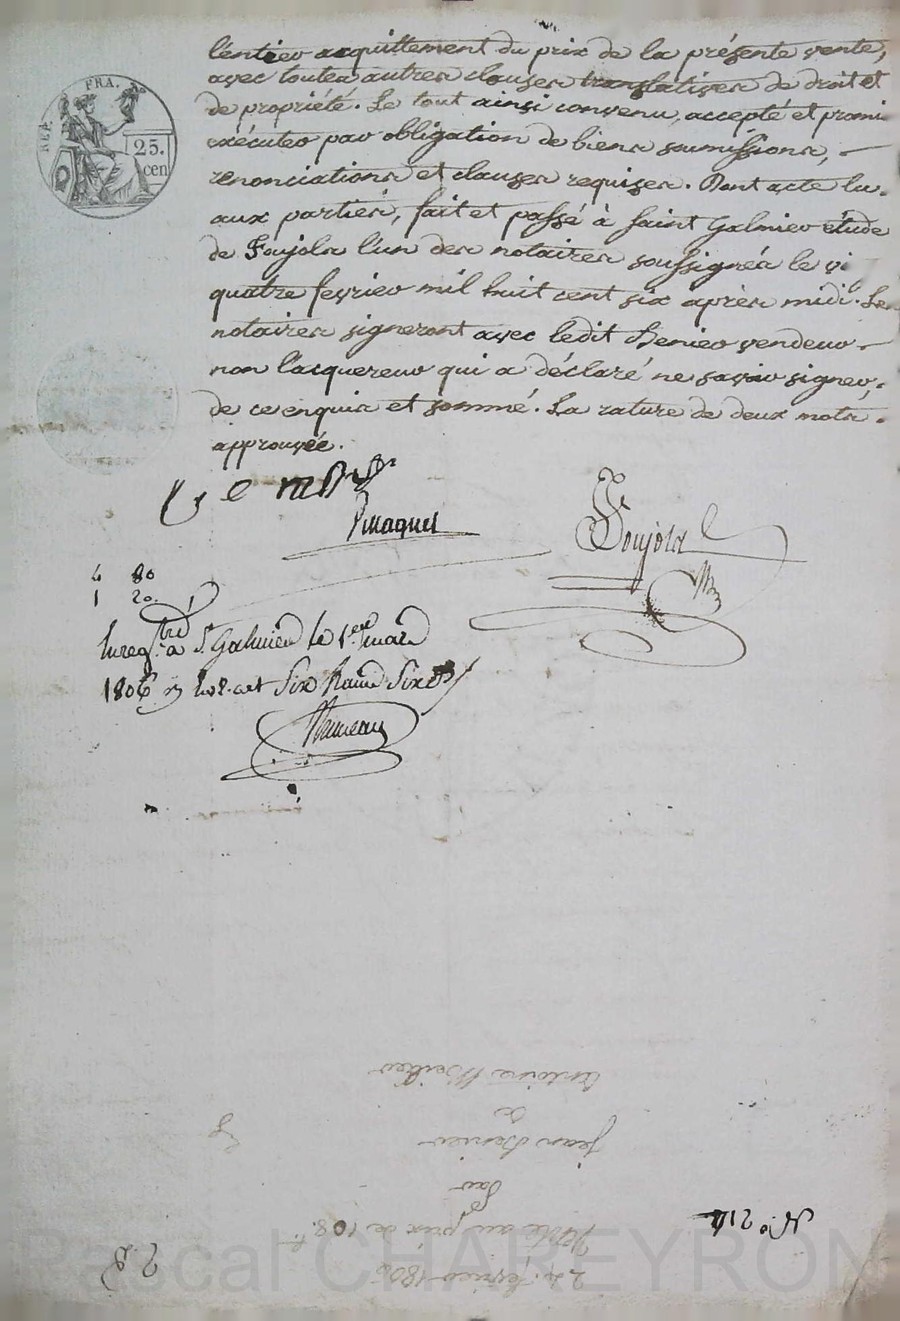 REP. FRA.
25.
cen
l'entier acquittement du prix de la présente vente,
avec toutes autres clauses translatives de droit et
de propriété. Le tout ainsi convenu, accepté et promi
exécuter par obligation de biens soumissions,
renonciations et clauses requises. Dont acte lu
aux parties, fait et passé à Saint Galmier étude
de Foujols l'un des notaires soussignés le vi
quatre fevrier mil huit cent six après midi. Les
notaires signeront avec ledit Benier vendeur
non l'acquereur qui a déclaré ne savoir signer,
de ce enquis et sommé. La rature de deux mots
approuvée.
Foujols
4 80
1 20
Enregtré à St Galmier le 1er mars
1806
24 fevrier 1806
Vente au prix de 108
Par
Jean Benier
à
Antoine
No 214
Pascal CHAREYRON